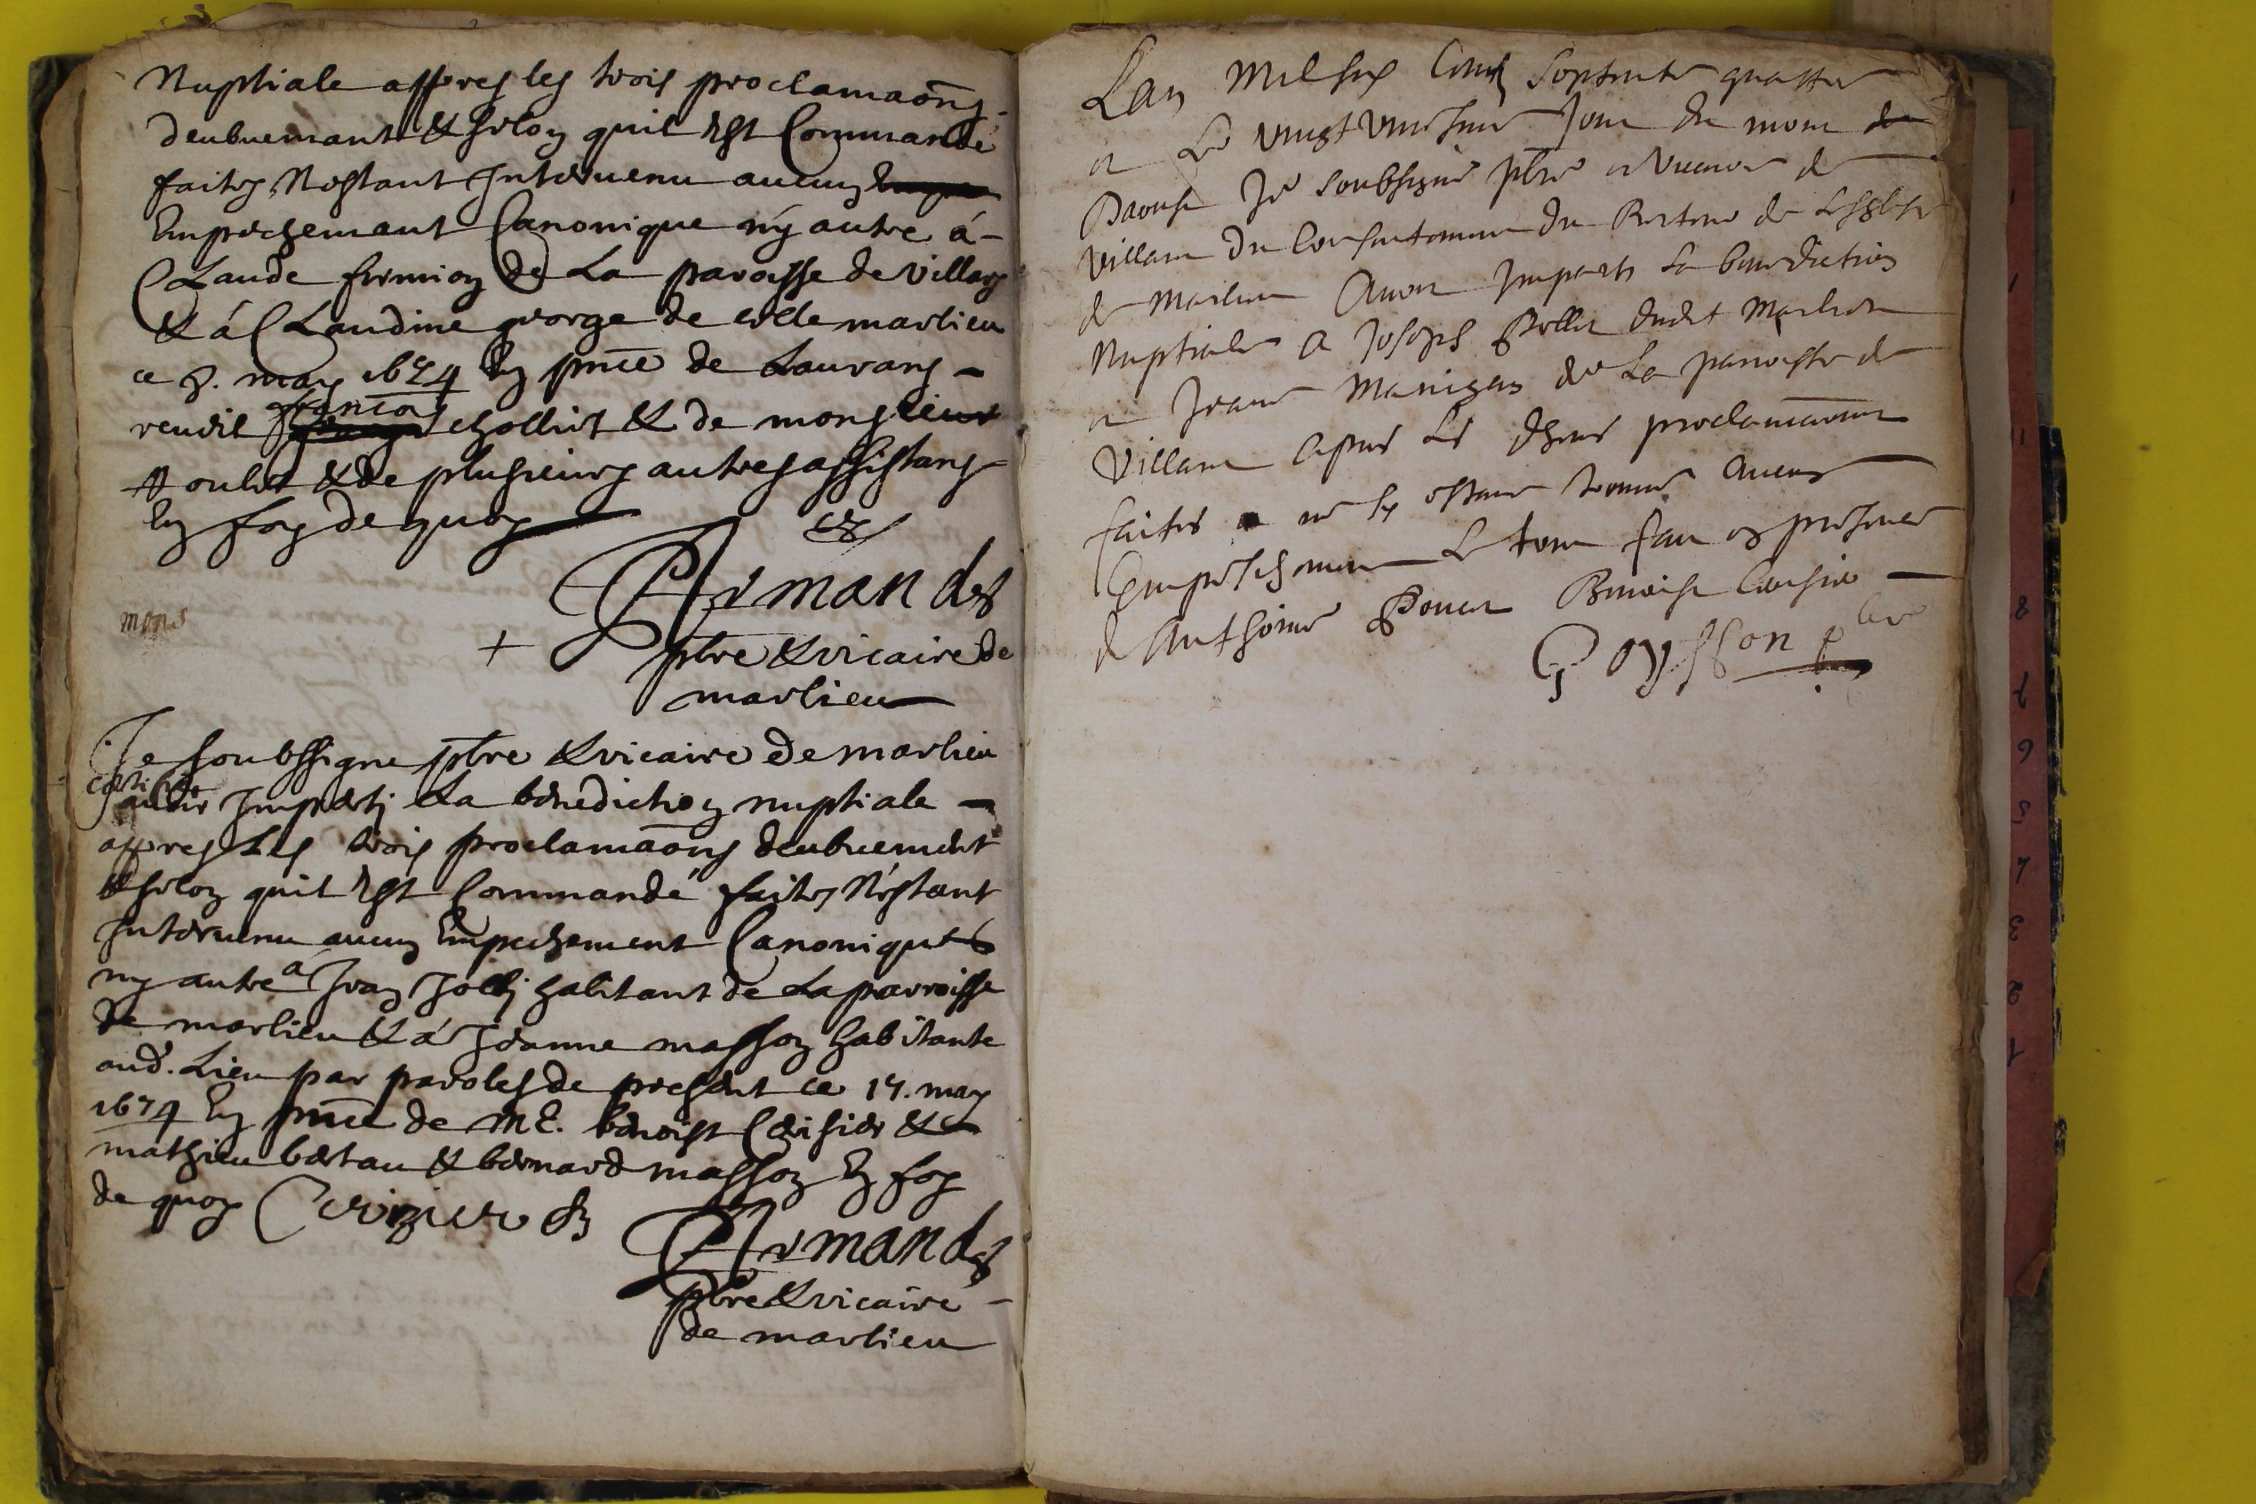 Nuptiale appres les trois proclamaõns
deubuemant & selon quil est Commandé
faites N'estant Interuenu aucun
Empeschemant Canonique ny autre á
Claude firmion de La paroisse de Villars
& á Claudine george de celle marlieu
ce 8. may 1674 En pnce de Laurans
reudit francois chollict & de monsieur
& de plusieurs autres assistans
En foy de quoy
Armandes
+ ptre & vicaire de
marlieu
mons
Je soubssigne ptre & vicaire de marlieu
certifie
auoir Imparti La benediction nuptiale
appres Les trois proclamaõns deubuement
& selon quil est Commandé faites N'estant
Interuenu aucun Empechement Canoniques
ny autre á Jean Jolly habitant de La parroisse
de marlieu & á Jeanne masson habitante
aud. Lieu par paroles de present ce 17. may
1674 En pnce de mE. benoist Cerisier &
mathieu bertau & bernard masson En foy
de quoy Cerizier
Armandes
ptre & vicaire
de marlieu
Lan mil six Cents septente quattre
et Le vingt uniesme Jour du mois
Daoust Je soubsigné ptre et vicaire de
Villars du Consentement du Recteur de Leglise
de Marlieu Auoir Imparty La benediction
Nuptiale a Joseph Pollet dudit Marlieu
et Jeanne Manigan de La paroisse de
Villars Apres Les proclamaõns
faites ne sy estant trouué Aucun
Empeschement Le tout fait en presence
d Anthoine Benoist Cerisie
Poysson pbre
8
7
6
5
4
3
2
1